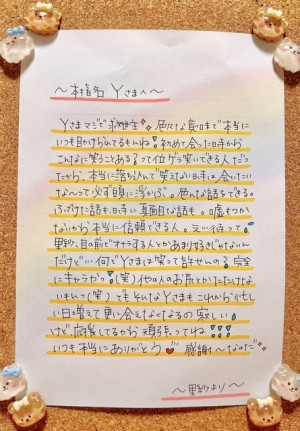 〜椎名Yさまへ〜
Yさまマジで救世主 色んな意味で本当に
いつも助けられてるもんね 初めて会った日から
こんなに笑うことあるって位ゲラ笑いできる人だっ
たから、本当に落ち込んで笑えない日でも、会いたい
なーって必ず頭に浮かぶ。色んな話をできる。
ふざけた話も、時に真面目な話も。嘘もつか
ないから本当に信頼できる人。
里紗、目の前でオナラする人とかあまり好きじゃないん
だけどい何でYさまは笑って許せんの 完全
にキャラかっ(笑)他の人のお尻とかいただけな
いもんっ(笑)でもそんなYさまもこれから忙し
い日増えて更に会えなくなるの寂しい
けど応援してるから頑張ってね!!!
いつも本当にありがとう 感謝〜なのだ
〜里紗より〜